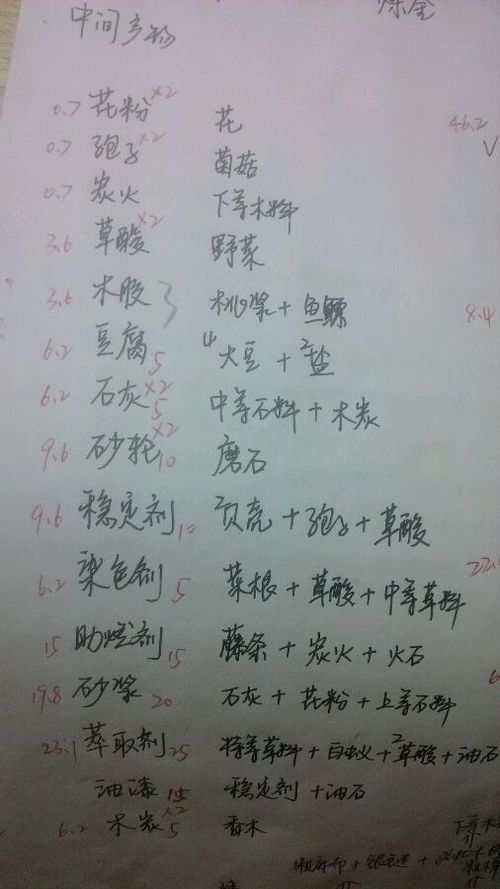 中间产物
炼金
0.7 花粉 ×2 花
46.2
0.7 孢子 ×2 菌菇
0.7 炭火 下等木料
3.6 草酸 ×2 野菜
3.6 木胶 3 桃浆 + 鱼鳔
8.4
6.2 豆腐 5 4大豆 + 2盐
6.2 石灰 ×2 5 中等石料 + 木炭
9.6 砂轮 ×2 10 磨石
9.6 稳定剂 10 贝壳 + 孢子 + 草酸
6.2 染色剂 5 菜根 + 草酸 + 中等草料
22.
15 助燃剂 15 藤条 + 炭火 + 火石
19.8 砂浆 20 石灰 + 花粉 + 上等石料
6
23.1 萃取剂 25 特等草料 + 白蚁 + 2草酸 + 油石
油漆 15 稳定剂 + 油石
6.2 木炭 ×2 5 香木
下等木
粗麻布 +